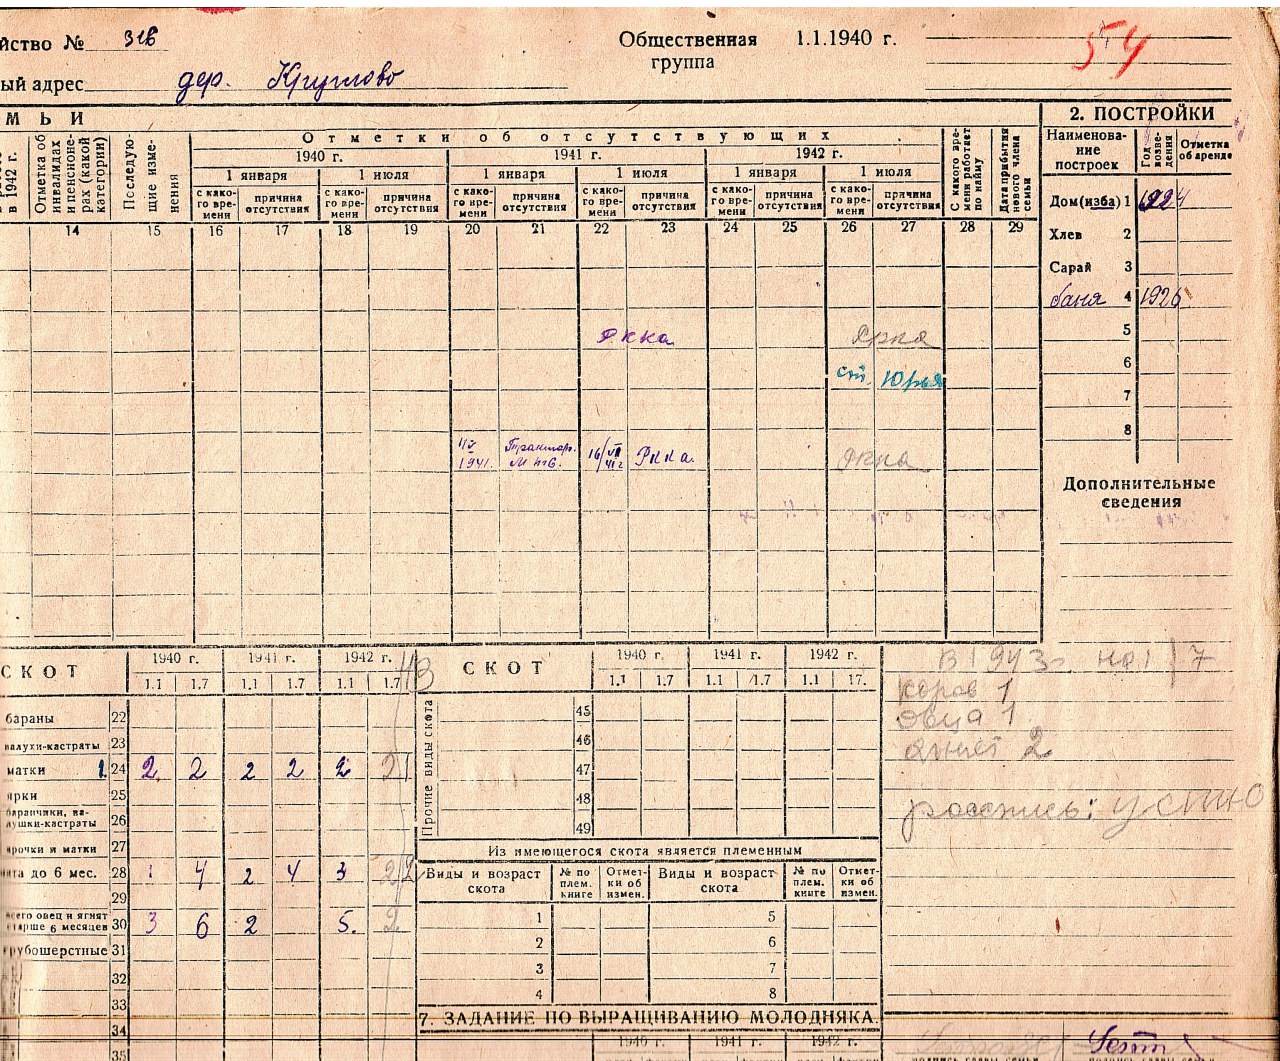 йство № 316
Общественная группа 1.1.1940 г.
54
ый адрес дер. Круглово
МЬИ
2. ПОСТРОЙКИ
в 1942 г.
Отметка об инвалидах и пенсионерах (какой категории)
Последующие изменения
Отметки об отсутствующих
1940 г. 1941 г. 1942 г.
1 января 1 июля 1 января 1 июля 1 января 1 июля
с какого времени причина отсутствия с какого времени причина отсутствия с какого времени причина отсутствия с какого времени причина отсутствия с какого времени причина отсутствия с какого времени причина отсутствия
С какого времени работает по найму
Дата прибытия нового члена семьи
Наименование построек Год возведения Отметка об аренде
14 15 16 17 18 19 20 21 22 23 24 25 26 27 28 29
Дом (изба) 1 1924
Хлев 2
Сарай 3
баня 4 1926
5
РККА
6
ст. Юрья
7
8
1941 Трактор. МТС. 16/VII 41 г РККА
Дополнительные сведения
СКОТ 1940 г. 1941 г. 1942 г.
1.1 1.7 1.1 1.7 1.1 1.7
СКОТ 1940 г. 1941 г. 1942 г.
1.1 1.7 1.1 1.7 1.1 17.
В 1943 г. на 1/7
коров 1
овца 1
ягнят 2
роспись:
бараны 22
валухи-кастраты 23
матки 24 2 2 2 2 2 2
ярки 25
баранчики, валушки-кастраты 26
ярочки и матки 27
ята до 6 мес. 28 1 4 2 4 3 2
29
всего овец и ягнят старше 6 месяцев 30 3 6 2 5. 2
грубошерстные 31
32
33
34
35
Прочие виды скота
45
46
47
48
49
Из имеющегося скота является племенным
Виды и возраст скота № по плем. книге Отметки об измен. Виды и возраст скота № по плем. книге Отметки об измен.
1 5
2 6
3 7
4 8
7. ЗАДАНИЕ ПО ВЫРАЩИВАНИЮ МОЛОДНЯКА.
1940 г. 1941 г. 1942 г.